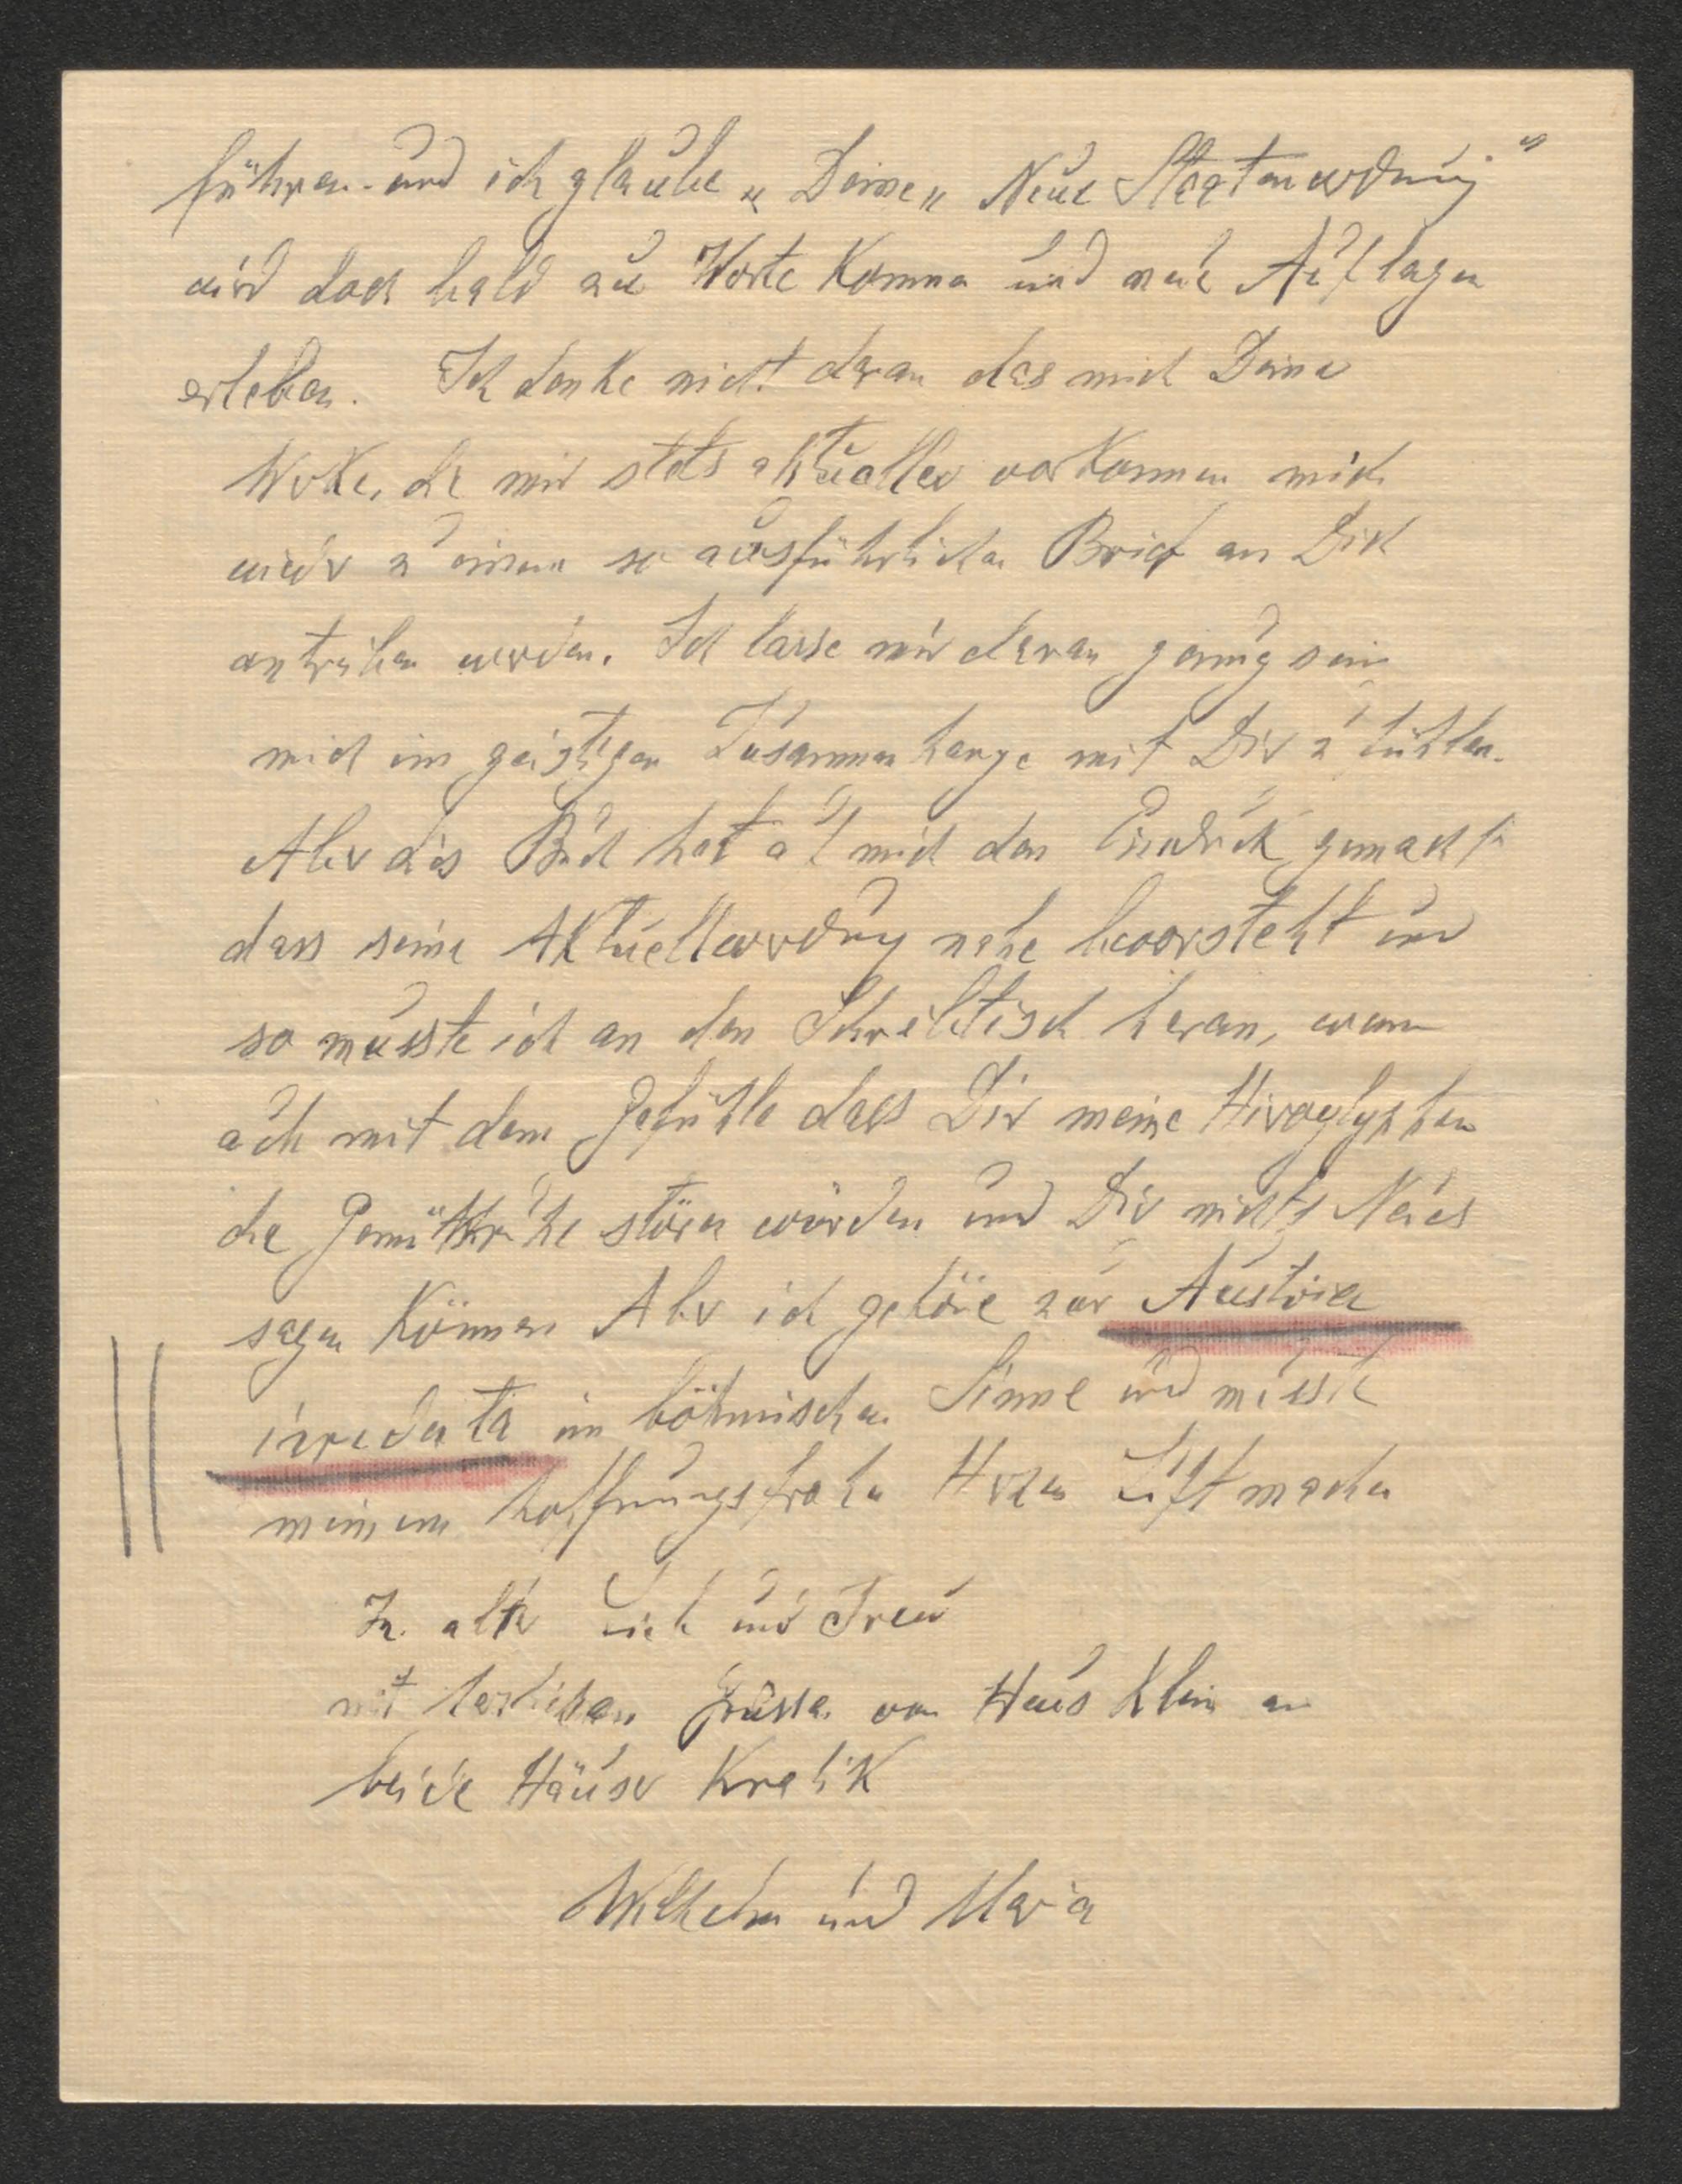 führen. und ich glaube „Deine„ Neue Staatenordnung"
wird doch bald zu Worte kommen und neue Auflagen
erleben. Ich denke nicht daran das mich Deine
Werke, die mir stets aktueller vorkommen mich
wieder zu einem so ausführlichen Brief an Dich
antreiben werden. Ich lasse mir daran genug sein
mich im geistigen Zusammenhange mit Dir zu fühlen.
Aber dies Buch hat auf mich den Eindruck gemacht
dass seine Aktuellwerdung nahe bevorsteht und
so musste ich an den Schreibtisch heran, wenn
auch mit dem Gefühle dass Dir meine Hiroglyphen
die Gemütsruhe stören würden und Dir nichts Neues
sagen können Aber ich gehöre zur Austria
irredenta im böhmischen Sinne und musste
meinem hoffnungsfrohen Herzen Luft machen
In alter Lieb und Treu
mit herzlichen Grüssen von Haus Klein an
beide Häuser Kralik
Wilhelm und Maria